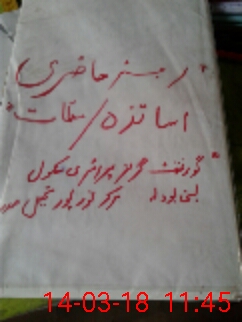 رجسٹر حاضری
اساتذہ / معلمات
گورنمنٹ گرلز پرائمری سکول
بستی بودلہ مرکز نور پور تحصیل
14-03-18 11:45